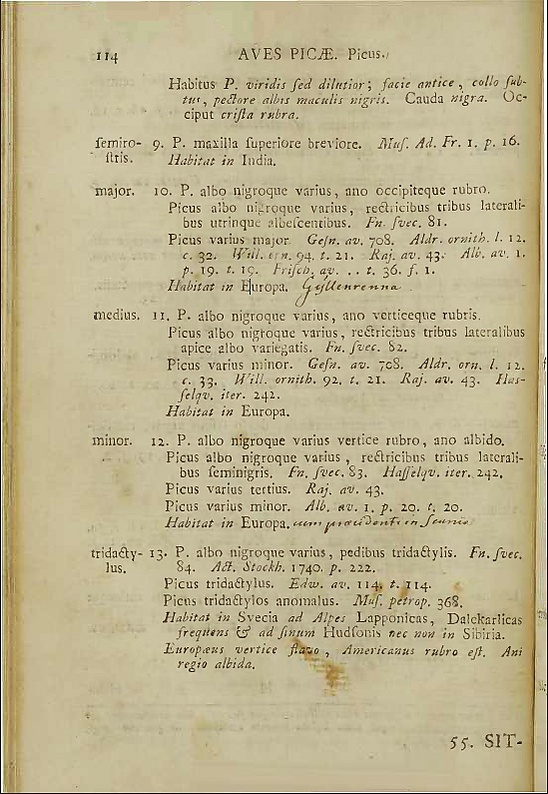 114 AVES PICÆ. Picus.
Habitus P. viridis ſed dilutior; facie antice, collo ſub-
tus, pectore albis maculis nigris. Cauda nigra. Oc-
ciput criſta rubra.
ſemiro- 9. P. maxilla ſuperiore breviore. Muſ. Ad. Fr. 1. p. 16.
ſtris. Habitat in India.
major. 10. P. albo nigroque varius, ano occipiteque rubro.
Picus albo nigroque varius, rectricibus tribus laterali-
bus utrinque albeſcentibus. Fn. ſvec. 81.
Picus varius major Geſn. av. 708. Aldr. ornith. l. 12.
c. 32. Will. orn. 94. t. 21. Raj. av. 43. Alb. av. 1.
p. 19. t. 19. Friſch. av. . . t. 36. f. 1.
Habitat in Europa.
medius. 11. P. albo nigroque varius, ano verticeque rubris.
Picus albo nigroque varius, rectricibus tribus lateralibus
apice albo variegatis. Fn. ſvec. 82.
Picus varius minor. Geſn. av. 708. Aldr. orn. l. 12.
c. 33. Will. ornith. 92. t. 21. Raj. av. 43. Haſ-
ſelqv. iter. 242.
Habitat in Europa.
minor. 12. P. albo nigroque varius vertice rubro, ano albido.
Picus albo nigroque varius, rectricibus tribus laterali-
bus ſeminigris. Fn. ſvec. 83. Haſſelqv. iter. 242.
Picus varius tertius. Raj. av. 43.
Picus varius minor. Alb. av. 1. p. 20. t. 20.
Habitat in Europa. cum in Scania
tridacty- 13. P. albo nigroque varius, pedibus tridactylis. Fn. ſvec.
lus. 84. Act. Stockh. 1740. p. 222.
Picus tridactylus. Edw. av. 114. t. 114.
Picus tridactylos anomalus. Muſ. petrop. 368.
Habitat in Svecia ad Alpes Lapponicas, Dalekarlicas
frequens & ad ſinum Hudſonis nec non in Sibiria.
Europæus vertice flavo, Americanus rubro eſt. Ani
regio albida.
55. SIT-